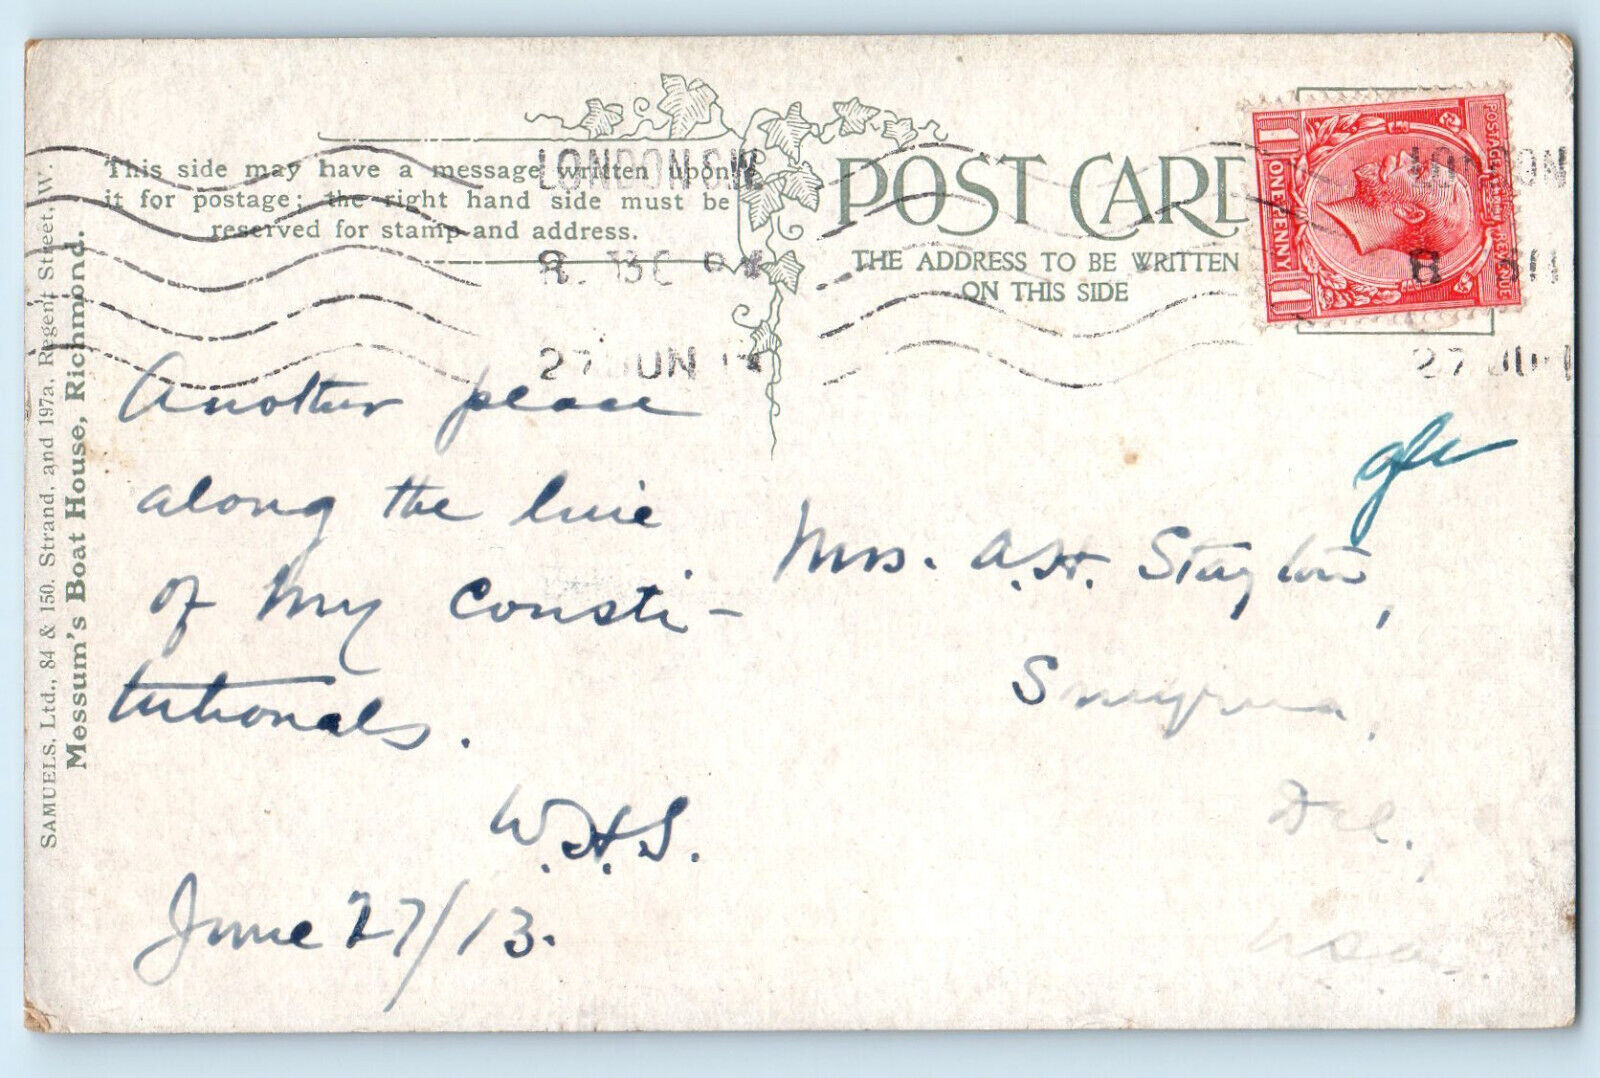 SAMUELS, Ltd., 84 & 150, Strand, and 197a, Regent Street, W.
Messum's Boat House, Richmond.
This side may have a message written upon
it for postage; the right hand side must be
reserved for stamp and address.
LONDON S.W.
27 JUN 13
POST CARD
THE ADDRESS TO BE WRITTEN
ON THIS SIDE
POSTAGE REVENUE
ONE PENNY
1
1
LONDON
27 JUN
Another place
along the line
of my consti-
tutionals.
W.H.S.
June 27/13.
Mrs. A.H. Stayton,
Smyrna,
Del.,
USA.